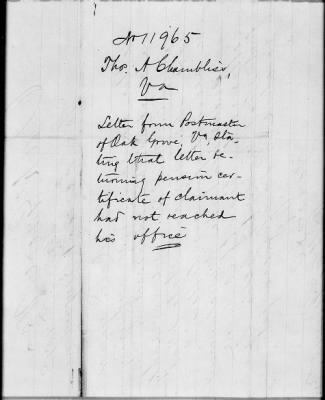 No 11965
Thos. A Chambliss,
Va
Letter from Postmaster
of Oak Grove, Va, sta-
ting that letter re-
turning pension cer-
tificate of claimant
had not reached
his office